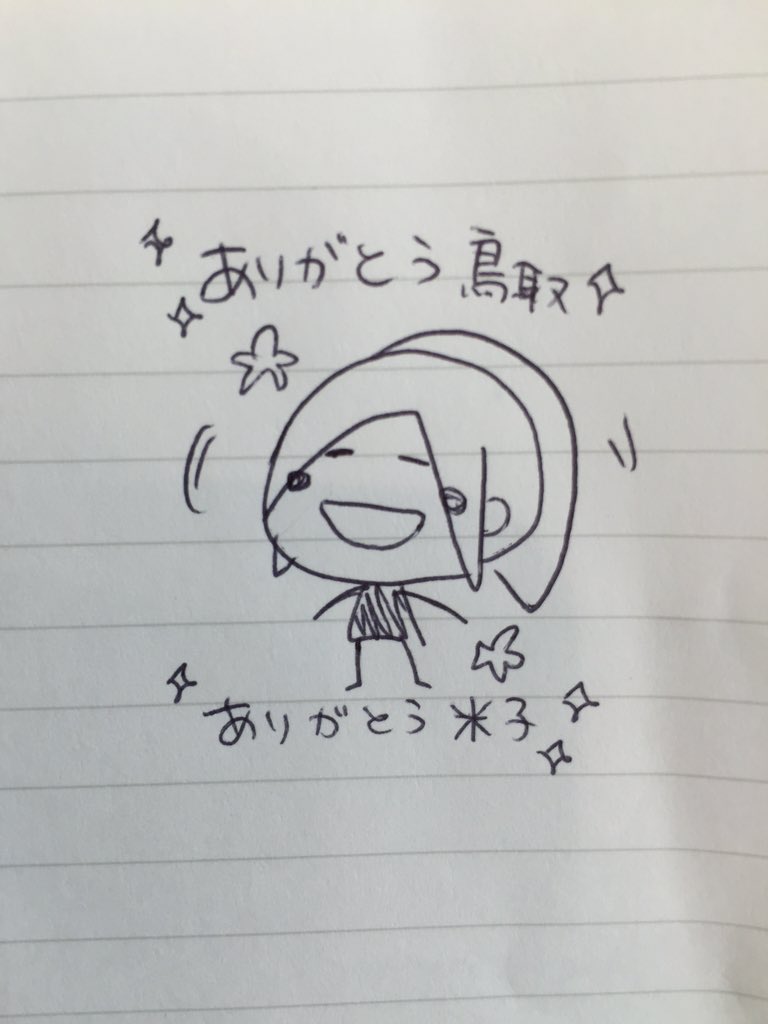 ありがとう鳥取
ありがとう米子